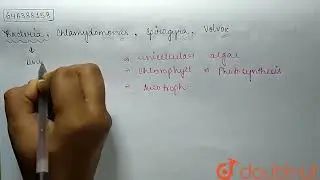 646386159
Bacteria, Chlamydomonas, Spirogyra, Volvox
→ unicellular algae
→ Chlorophyll → Photosynthesis
→ Autotroph
doubtnut